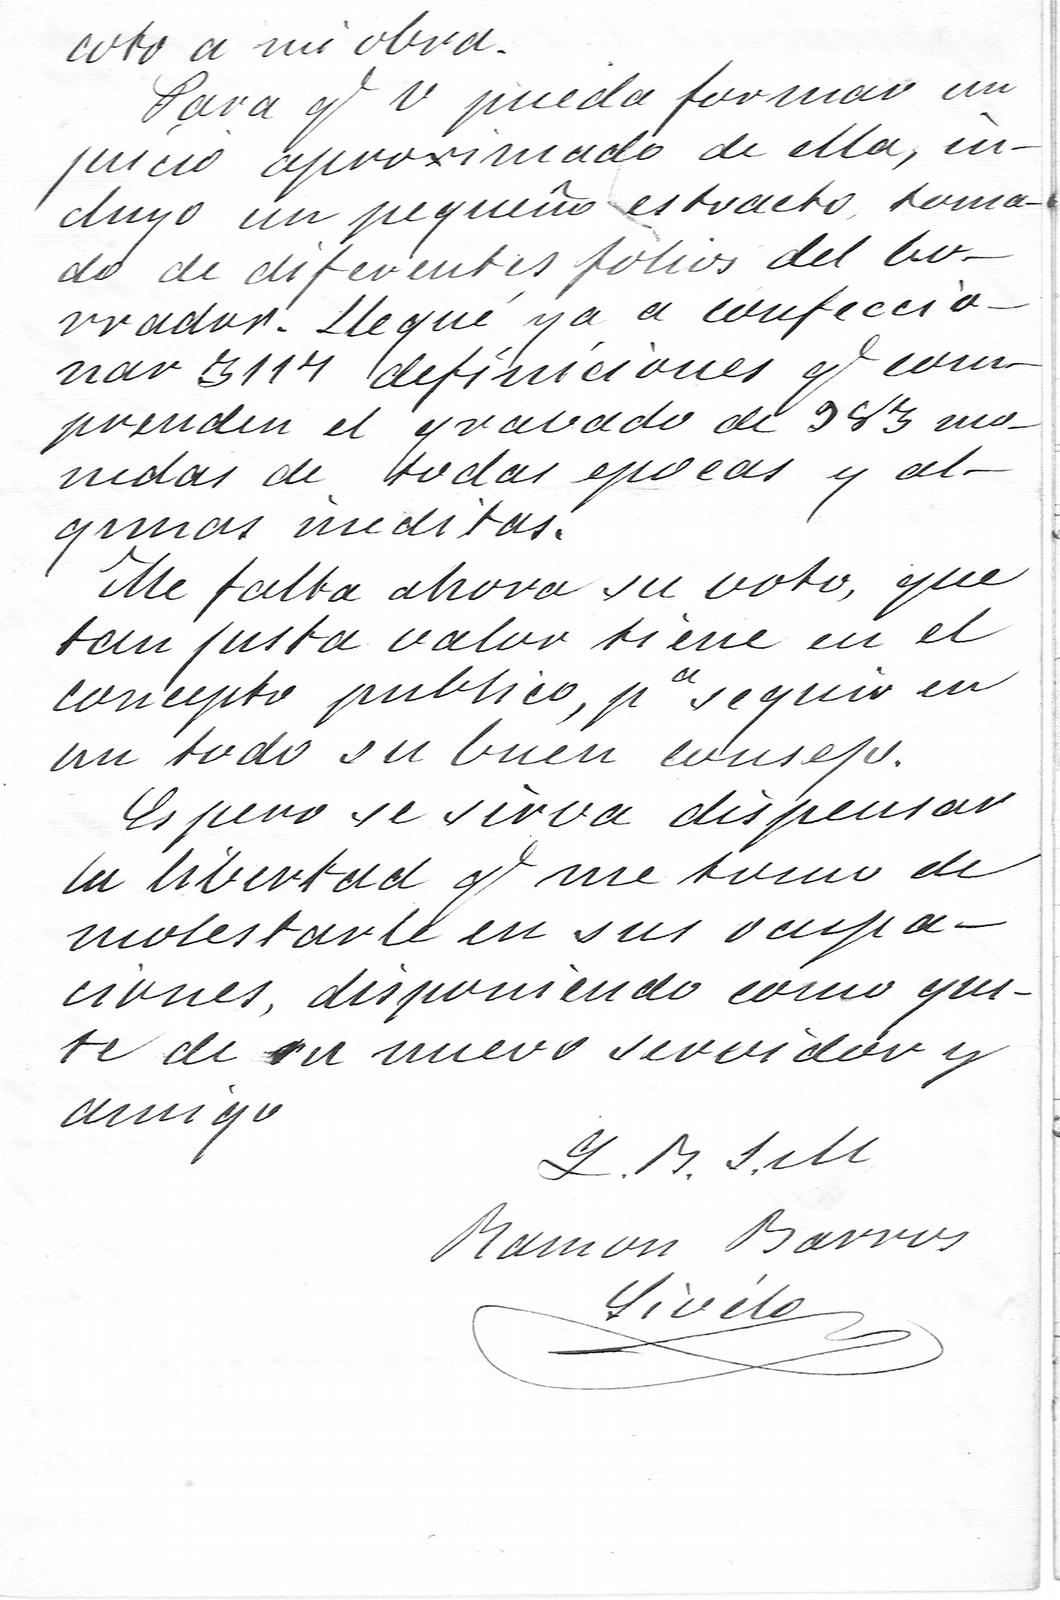 coto a mi obra.
Para q.e V pueda formar un
juicio aproximado de ella, in-
cluyo un pequeño estracto, toma-
do de diferentes folios del bo-
rrador. Llegué ya a confeccio-
nar 3114 definiciones q.e com-
prenden el gravado de 983 mo-
nedas de todas epocas y al-
gunas ineditas.
Me falta ahora su voto, que
tan justa valor tiene en el
concepto publico, pª seguir en
un todo su buen consejo.
Espero se sirva dispensar
la libertad q.e me tomo de
molestarle en sus ocupa-
ciones, disponiendo como gus-
te de su nuevo servidor y
amigo
Q. B. S. M
Ramon Barros
Sivelo